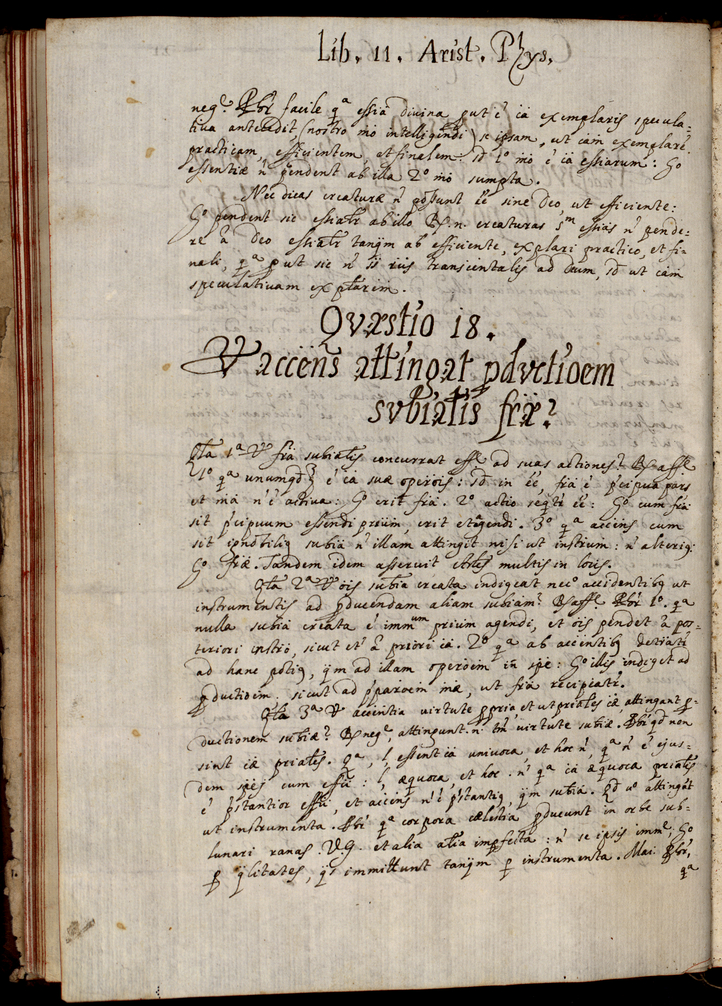 Lib. 11. Arist. Phys.
neg.ͤ Pbr̃ facile qᵃ essia divina put ē cā exemplaris specula-
tiva antecedit (nostro mō intelligendi) se ipsam, ut cām exemplarē
practicam, efficientem, et finalem. sꝫ 2º mō ē cā essiarum: Gº
essentiæ ñ pendent ab illa 2º mō sumpta.
Nec dicas creaturæ ñ possunt ēē sine Deo ut efficiente:
Gº pendent sic essialr̃ ab illo. R. n. creaturas s̃m essias ñ pende-
re à Deo essialr̃ tanq̃m ab efficiente, explari practico, et fi-
nali, qᵃ put sic ñ transcientales ad Deum, sꝫ ut cām
speculativam explarem.
Qvæstio 18.
V accens attingat pdvctioem
svbialis fræ?
Qta 1ᵃ V fra subialis concurrat effẽ ad suas actiones? R affẽ
1º qᵃ unumqdꝫ ē cā suæ operois: sꝫ in ēē, fra ē pcipua pars
et mā n'ē activa: Gº erit fra. 2º actio seqr̃ ēē: Gº cum fra
sit pcipuum essendi prium, erit et agendi. 3º qᵃ accens cum
sit ignobiliꝰ subiā ñ illam attingit nisi ut instrum: ñ alteriꝰ:
Gº fræ. Tandem idem asseruit multis in locis.
Qta 2ᵃ V ois subia creata indigeat necº accidentibꝰ ut
instrumentis ad pducendam aliam subiam? R affẽ. Pbr̃ 1º. qᵃ
nulla subia creata ē immᵘᵐ prium agendi, et ois pendet à pos-
teriori instrō, sicut et à priori cā. 2º qᵃ ab accentibꝰ
ad hanc potiꝰ, qm ad illam operoem in spe: Gº illis indiget ad
pductioem. sicut ad pparoem mæ, ut fra recipiatr̃.
Qta 3ᵃ V accentia virtute ppria et ut priales cæ attingant p-
ductionem subiæ? R negᵉ, attingunt. n. tm̃ virtute subiæ. Pbr̃ qd non
sint cæ priales. qᵃ, l' essent cā univoca et hoc ñ qᵃ ñ ē ejus-
dem spei cum effu: l' æquoca et hoc ñ qᵃ cā æquoca prialis
ē pstantior effu, et accens n'ē pstantiꝰ, qm subia. Qd vº attingāt
ut instrumenta. Pbr̃ qᵃ corpora cœlestia pducunt in orbe sub-
lunari ranas V.G. et alia aīalia imprfecta: ñ se ipsis immᵉ; Gº
p qlitates, qs immittunt tanqm p instrumenta. Mai: Pbr̃,
qᵃ